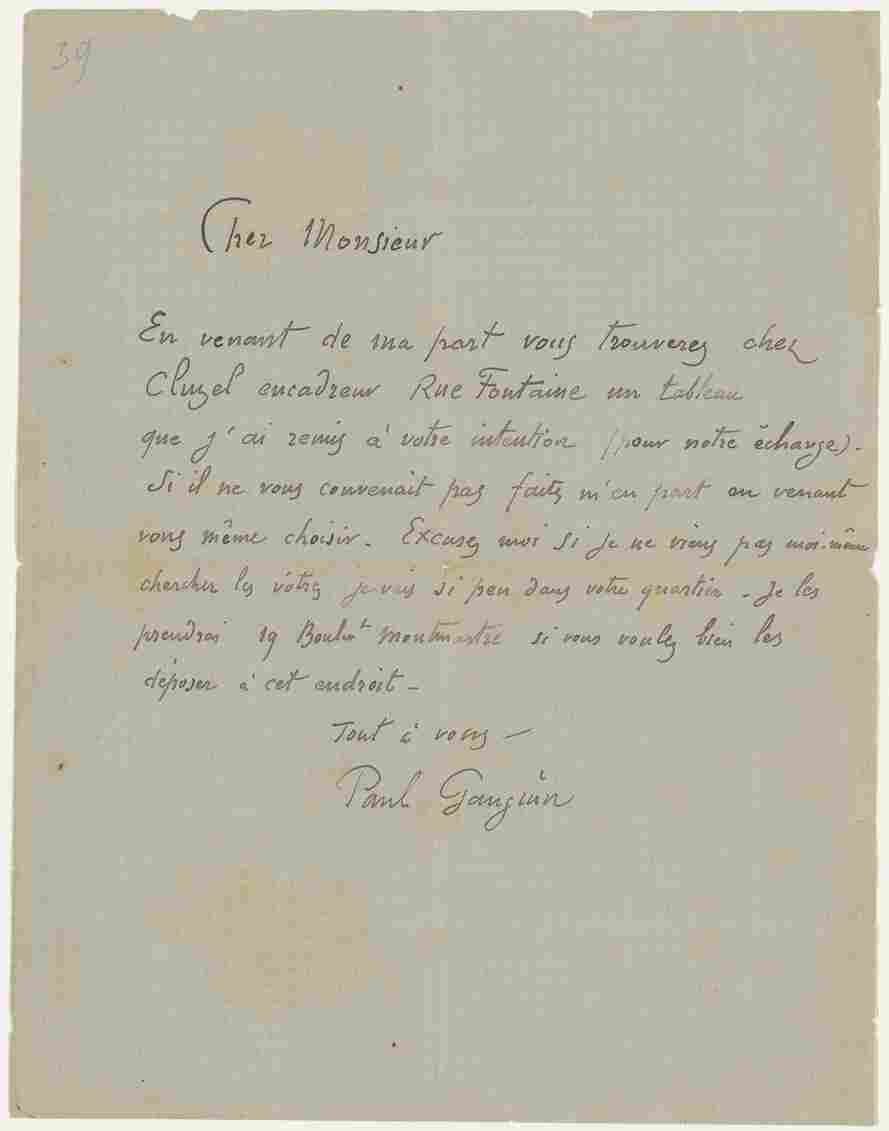 39
Cher Monsieur
En venant de ma part vous trouverez chez
Cluzel encadreur Rue Fontaine un tableau
que j'ai remis à votre intention (pour notre échange).
Si il ne vous convenait pas faites m'en part en venant
vous même choisir. Excusez moi si je ne viens pas moi-même
chercher les vôtres je vais si peu dans votre quartier. Je les
prendrai 19 Boulevt Montmartre si vous voulez bien les
déposer à cet endroit -
Tout à vous -
Paul Gauguin